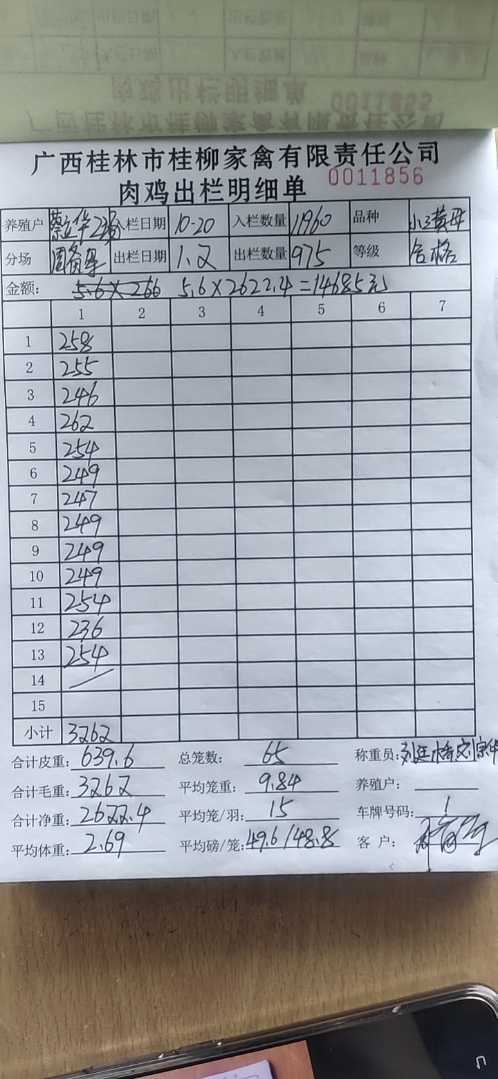 肉鸡出栏明细单 0011855
广西桂林市桂柳家禽有限责任公司
广西桂林市桂柳家禽有限责任公司
肉鸡出栏明细单 0011856
养殖户 蔡立华2场 入栏日期 10-20 入栏数量 11960 品种
分场 出栏日期 1.2 出栏数量 975 等级 合格
金额: 5.6×266 5.6×2622.4=14685元
1 2 3 4 5 6 7
1 258
2 255
3 246
4 262
5 254
6 249
7 247
8 249
9 249
10 249
11 254
12 236
13 254
14
15
小计 3262
合计皮重: 639.6 总笼数: 65 称重员:
合计毛重: 3262 平均笼重: 9.84 养殖户:
合计净重: 2622.4 平均笼/羽: 15 车牌号码: 1
平均体重: 2.69 平均磅/笼: 49.6/48.8 客户: